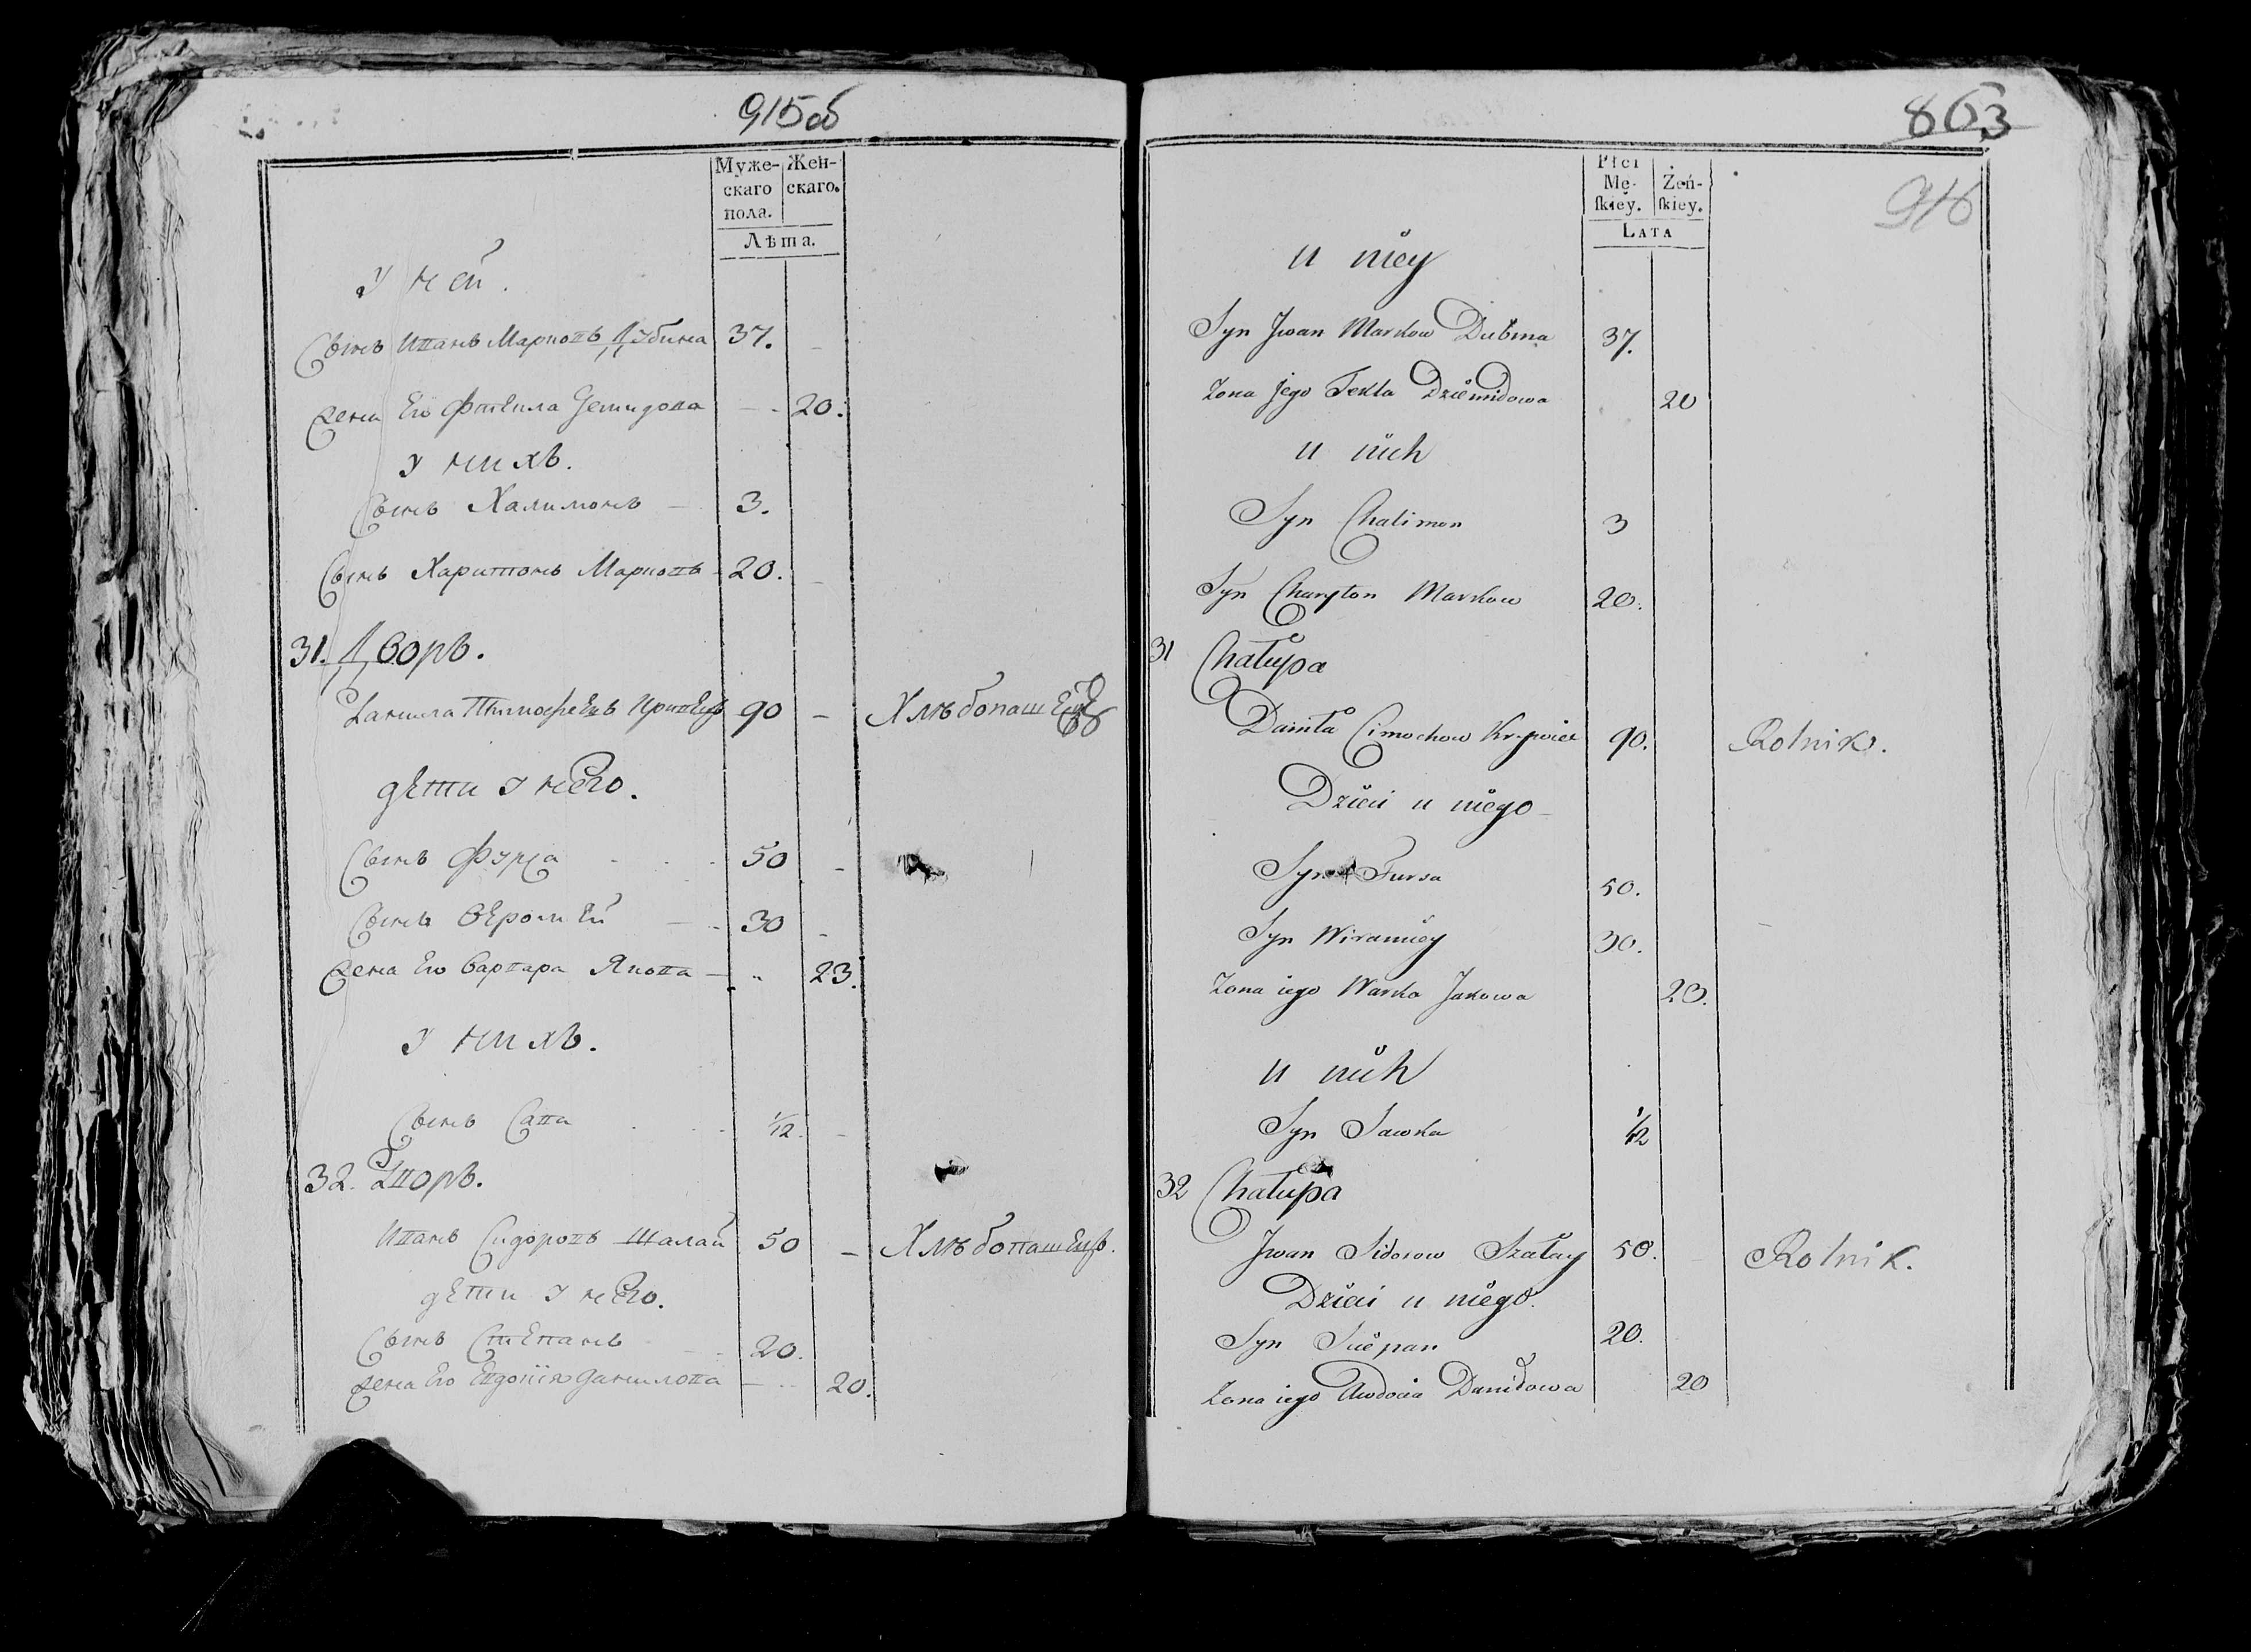 915об
Муже- Жен-
скаго скаго.
пола.
Лѣта.
У ней.
Сынъ Иванъ Марковъ Дубина 37.
Жена Его Фтекла Демидова 20.
У нихъ.
Сынъ Халимонъ 3.
Сынъ Харитонъ Марковъ 20.
31. Дворъ.
Данила Тимофеевъ Кривецъ 90 Хлѣбопашецъ
дети У него.
Сынъ Фурса 50
Сынъ Веромей 30
Жена Его Варвара Якова 23.
У нихъ.
Сынъ Сава 1/12.
32. Дворъ.
Иванъ Сидоровъ Шалай 50 Хлѣбопашецъ.
дети У него.
Сынъ Степанъ 20.
Жена Его Евдокія Данилова 20.
863
916
Płci
Mę- Żeń-
ſkiey. ſkiey.
LATA
u niey
Syn Jwan Markow Dubina 37.
Zona jego Tekla Dziemidowa 20
u nich
Syn Chalimon 3
Syn Charyton Markow 20.
31 Chałupa
Daniła Cimochow Krywiec 90. Rolnik.
Dzieci u niego
Syn Fursa 50.
Syn Wiramiey 30.
Zona iego Warka Jakowa 23.
u nich
Syn Sawka 1/12
32 Chałupa
Jwan Sidorow Szałay 50. Rolnik.
Dzieci u niego.
Syn Sciepan 20.
Zona iego Awdocia Daniłowa 20